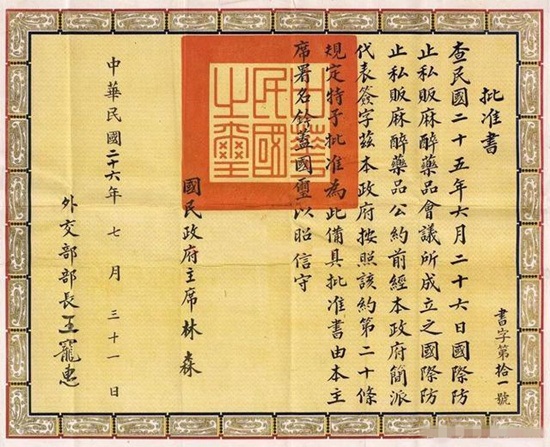 批准書
查民國二十五年六月二十六日國際防
止私販麻醉藥品會議所成立之國際防
止私販麻醉藥品公約前經本政府簡派
代表簽字茲本政府按照該約第二十條
規定特予批准為此備具批准書由本主
席署名鈐蓋國璽以昭信守
國民政府主席林森
中華民國二十六年七月三十一日
外交部部長王寵惠
書字第拾一號
中華民國之璽